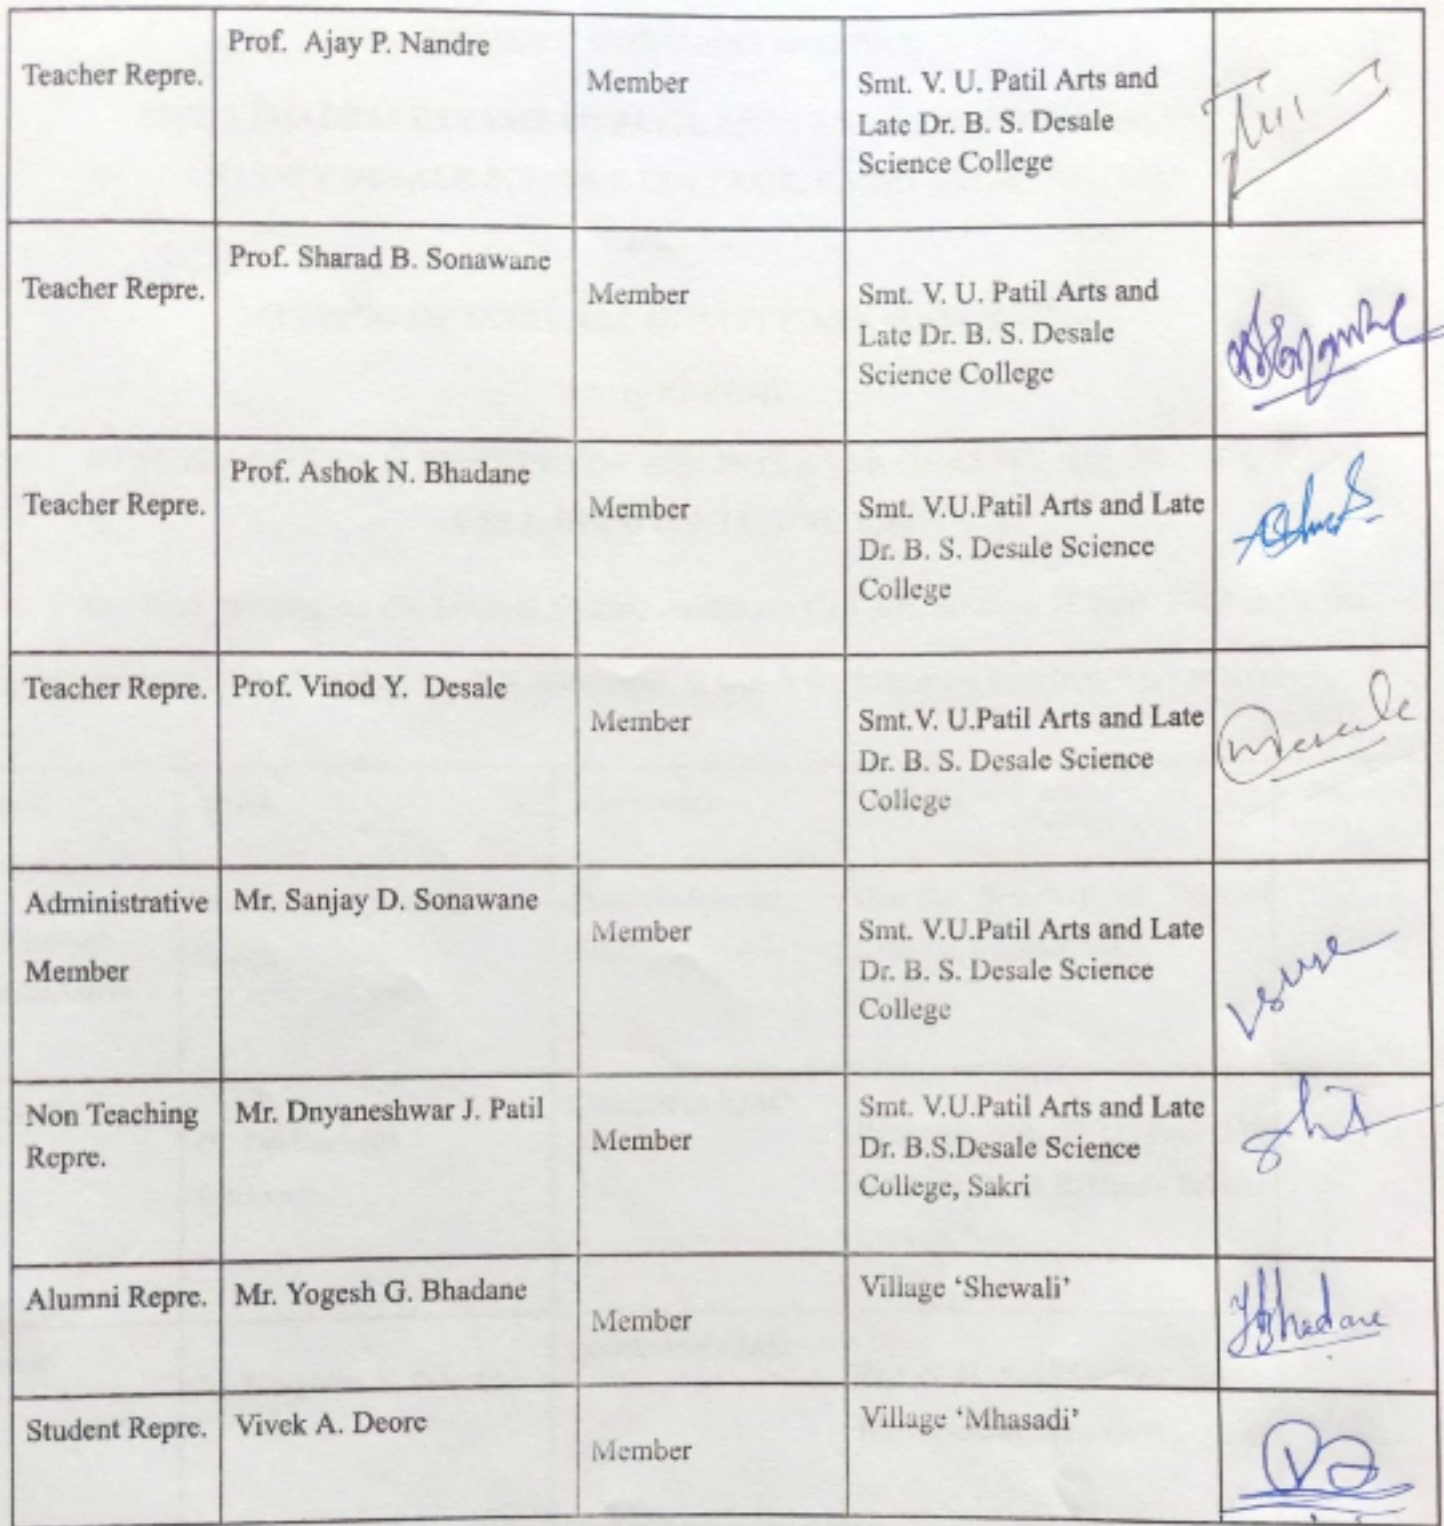 Teacher Repre.
Prof. Ajay P. Nandre
Member
Smt. V. U. Patil Arts and
Late Dr. B. S. Desale
Science College
Teacher Repre.
Prof. Sharad B. Sonawane
Member
Smt. V. U. Patil Arts and
Late Dr. B. S. Desale
Science College
Teacher Repre.
Prof. Ashok N. Bhadane
Member
Smt. V.U.Patil Arts and Late
Dr. B. S. Desale Science
College
Teacher Repre.
Prof. Vinod Y. Desale
Member
Smt.V. U.Patil Arts and Late
Dr. B. S. Desale Science
College
Administrative
Member
Mr. Sanjay D. Sonawane
Member
Smt. V.U.Patil Arts and Late
Dr. B. S. Desale Science
College
Non Teaching
Repre.
Mr. Dnyaneshwar J. Patil
Member
Smt. V.U.Patil Arts and Late
Dr. B.S.Desale Science
College, Sakri
Alumni Repre.
Mr. Yogesh G. Bhadane
Member
Village ‘Shewali’
YBhadane
Student Repre.
Vivek A. Deore
Member
Village ‘Mhasadi’